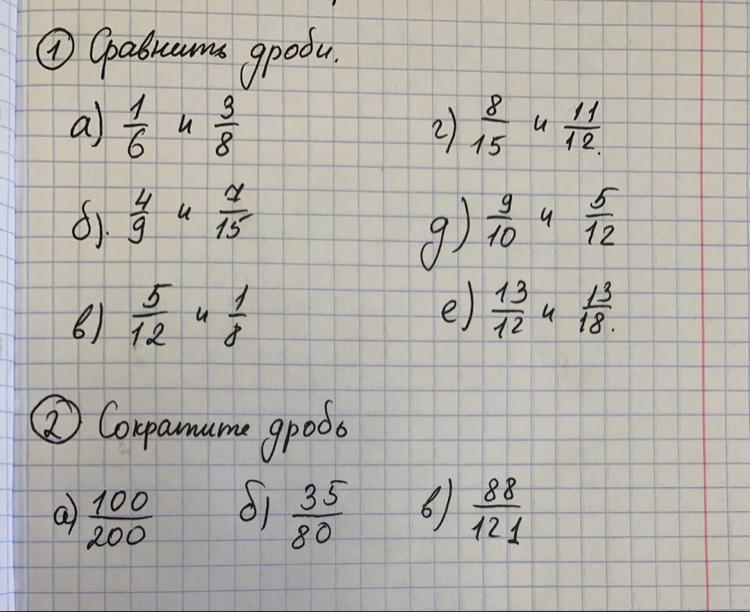 1 Сравнить дроби.
а) 1/6 и 3/8
г) 8/15 и 11/12.
б). 4/9 и 7/15
д) 9/10 и 5/12
в) 5/12 и 1/8
е) 13/12 и 13/18.
2 Сократите дробь
а) 100/200 б) 35/80 в) 88/121